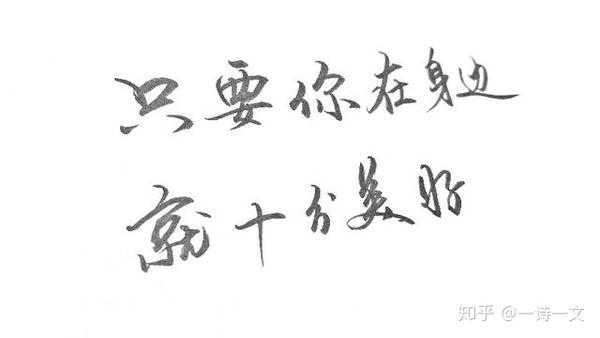 只要你在身边
就十分美好
知乎 @一诗一文